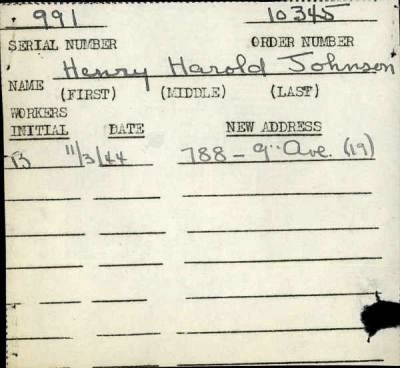 991 10345
SERIAL NUMBER ORDER NUMBER
Henry Harold Johnson
NAME (FIRST) (MIDDLE) (LAST)
WORKERS
INITIAL DATE NEW ADDRESS
B 11/3/44 788 - 9" Ave. (19)